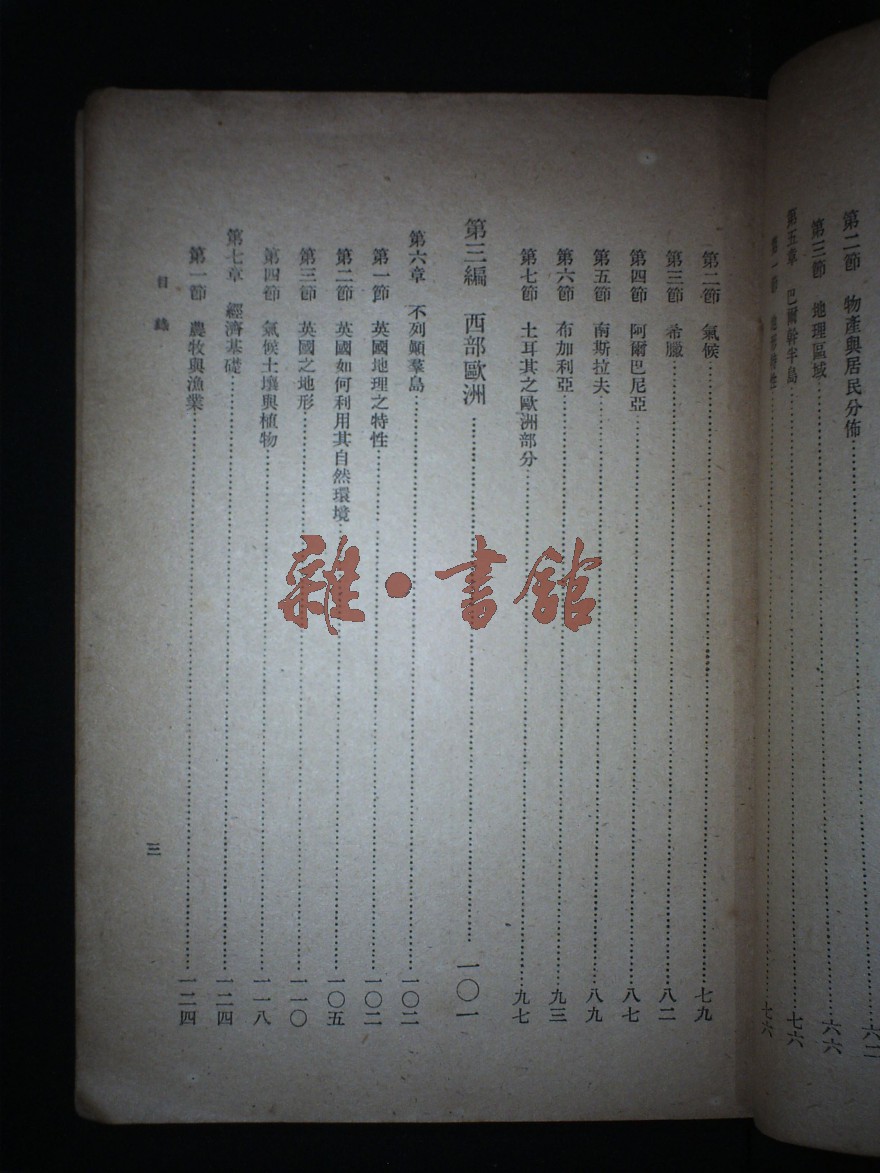 第二節 物產與居民分佈……六二
第三節 地理區域……六六
第五章 巴爾幹半島……七六
第一節 地形特性……七六
第二節 氣候……七九
第三節 希臘……八二
第四節 阿爾巴尼亞……八七
第五節 南斯拉夫……八九
第六節 布加利亞……九三
第七節 土耳其之歐洲部分……九七
第三編 西部歐洲……一〇一
第六章 不列顛羣島……一〇二
第一節 英國地理之特性……一〇二
第二節 英國如何利用其自然環境……一〇五
第三節 英國之地形……一一〇
第四節 氣候土壤與植物……一一八
第七章 經濟基礎……一二四
第一節 農牧與漁業……一二四
目錄
三
雜·書館